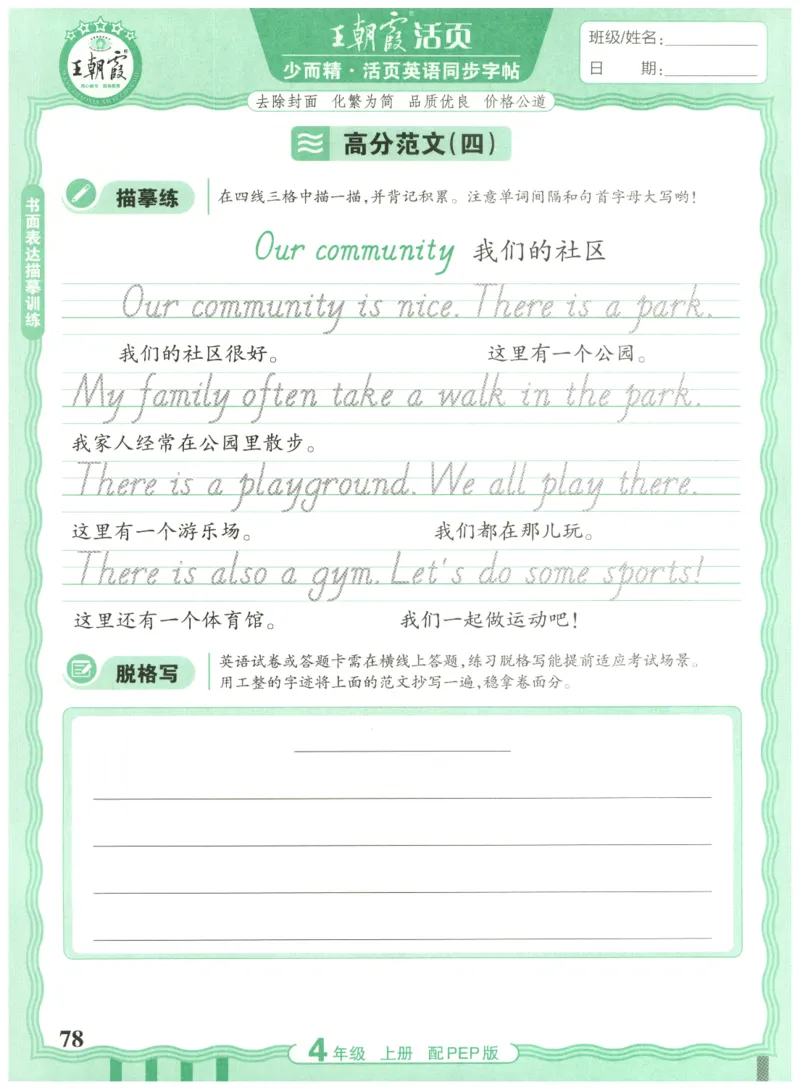 王朝霞
王朝霞 活页
少而精·活页英语同步字帖
班级/姓名:
日 期:
去除封面 化繁为简 品质优良 价格公道
高分范文(四)
书面表达描摹训练
描摹练
在四线三格中描一描,并背记积累。注意单词间隔和句首字母大写哟!
Our community 我们的社区
Our community is nice. There is a park.
我们的社区很好。 这里有一个公园。
My family often take a walk in the park.
我家人经常在公园里散步。
There is a playground. We all play there.
这里有一个游乐场。 我们都在那儿玩。
There is also a gym. Let's do some sports!
这里还有一个体育馆。 我们一起做运动吧!
脱格写
英语试卷或答题卡需在横线上答题,练习脱格写能提前适应考试场景。
用工整的字迹将上面的范文抄写一遍,稳拿卷面分。
78
4年级 上册 配PEP版